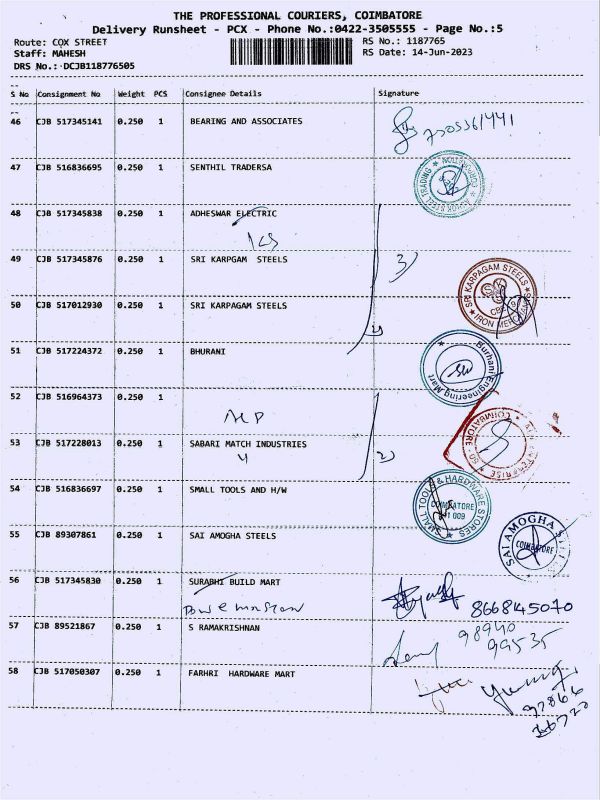 THE PROFESSIONAL COURIERS, COIMBATORE
Delivery Runsheet - PCX - Phone No.:0422-3505555 - Page No.:5
Route: COX STREET RS No.: 1187765
Staff: MAHESH RS Date: 14-Jun-2023
DRS No.: DCJB118776505
S No Consignment No Weight PCS Consignee Details Signature
46 CJB 517345141 0.250 1 BEARING AND ASSOCIATES
47 CJB 516836695 0.250 1 SENTHIL TRADERSA
ASHOK STEEL TRADING CORPORATION
48 CJB 517345838 0.250 1 ADHESWAR ELECTRIC
49 CJB 517345876 0.250 1 SRI KARPGAM STEELS
3)
SRI KARPAGAM STEELS
IRON MERCHANTS
50 CJB 517012930 0.250 1 SRI KARPAGAM STEELS
51 CJB 517224372 0.250 1 BHURANI
Burhani Engineering Mart
52 CJB 516964373 0.250 1
COIMBATORE
53 CJB 517228013 0.250 1 SABARI MATCH INDUSTRIES
2)
54 CJB 516836697 0.250 1 SMALL TOOLS AND H/W
SMALL TOOLS & HARDWARE STORES
COIMBATORE
55 CJB 89307861 0.250 1 SAI AMOGHA STEELS
SAI AMOGHA
COIMBATORE
56 CJB 517345830 0.250 1 SURABHI BUILD MART
866845070
57 CJB 89521867 0.250 1 S RAMAKRISHNAN
98940
99535
58 CJB 517050307 0.250 1 FARHRI HARDWARE MART